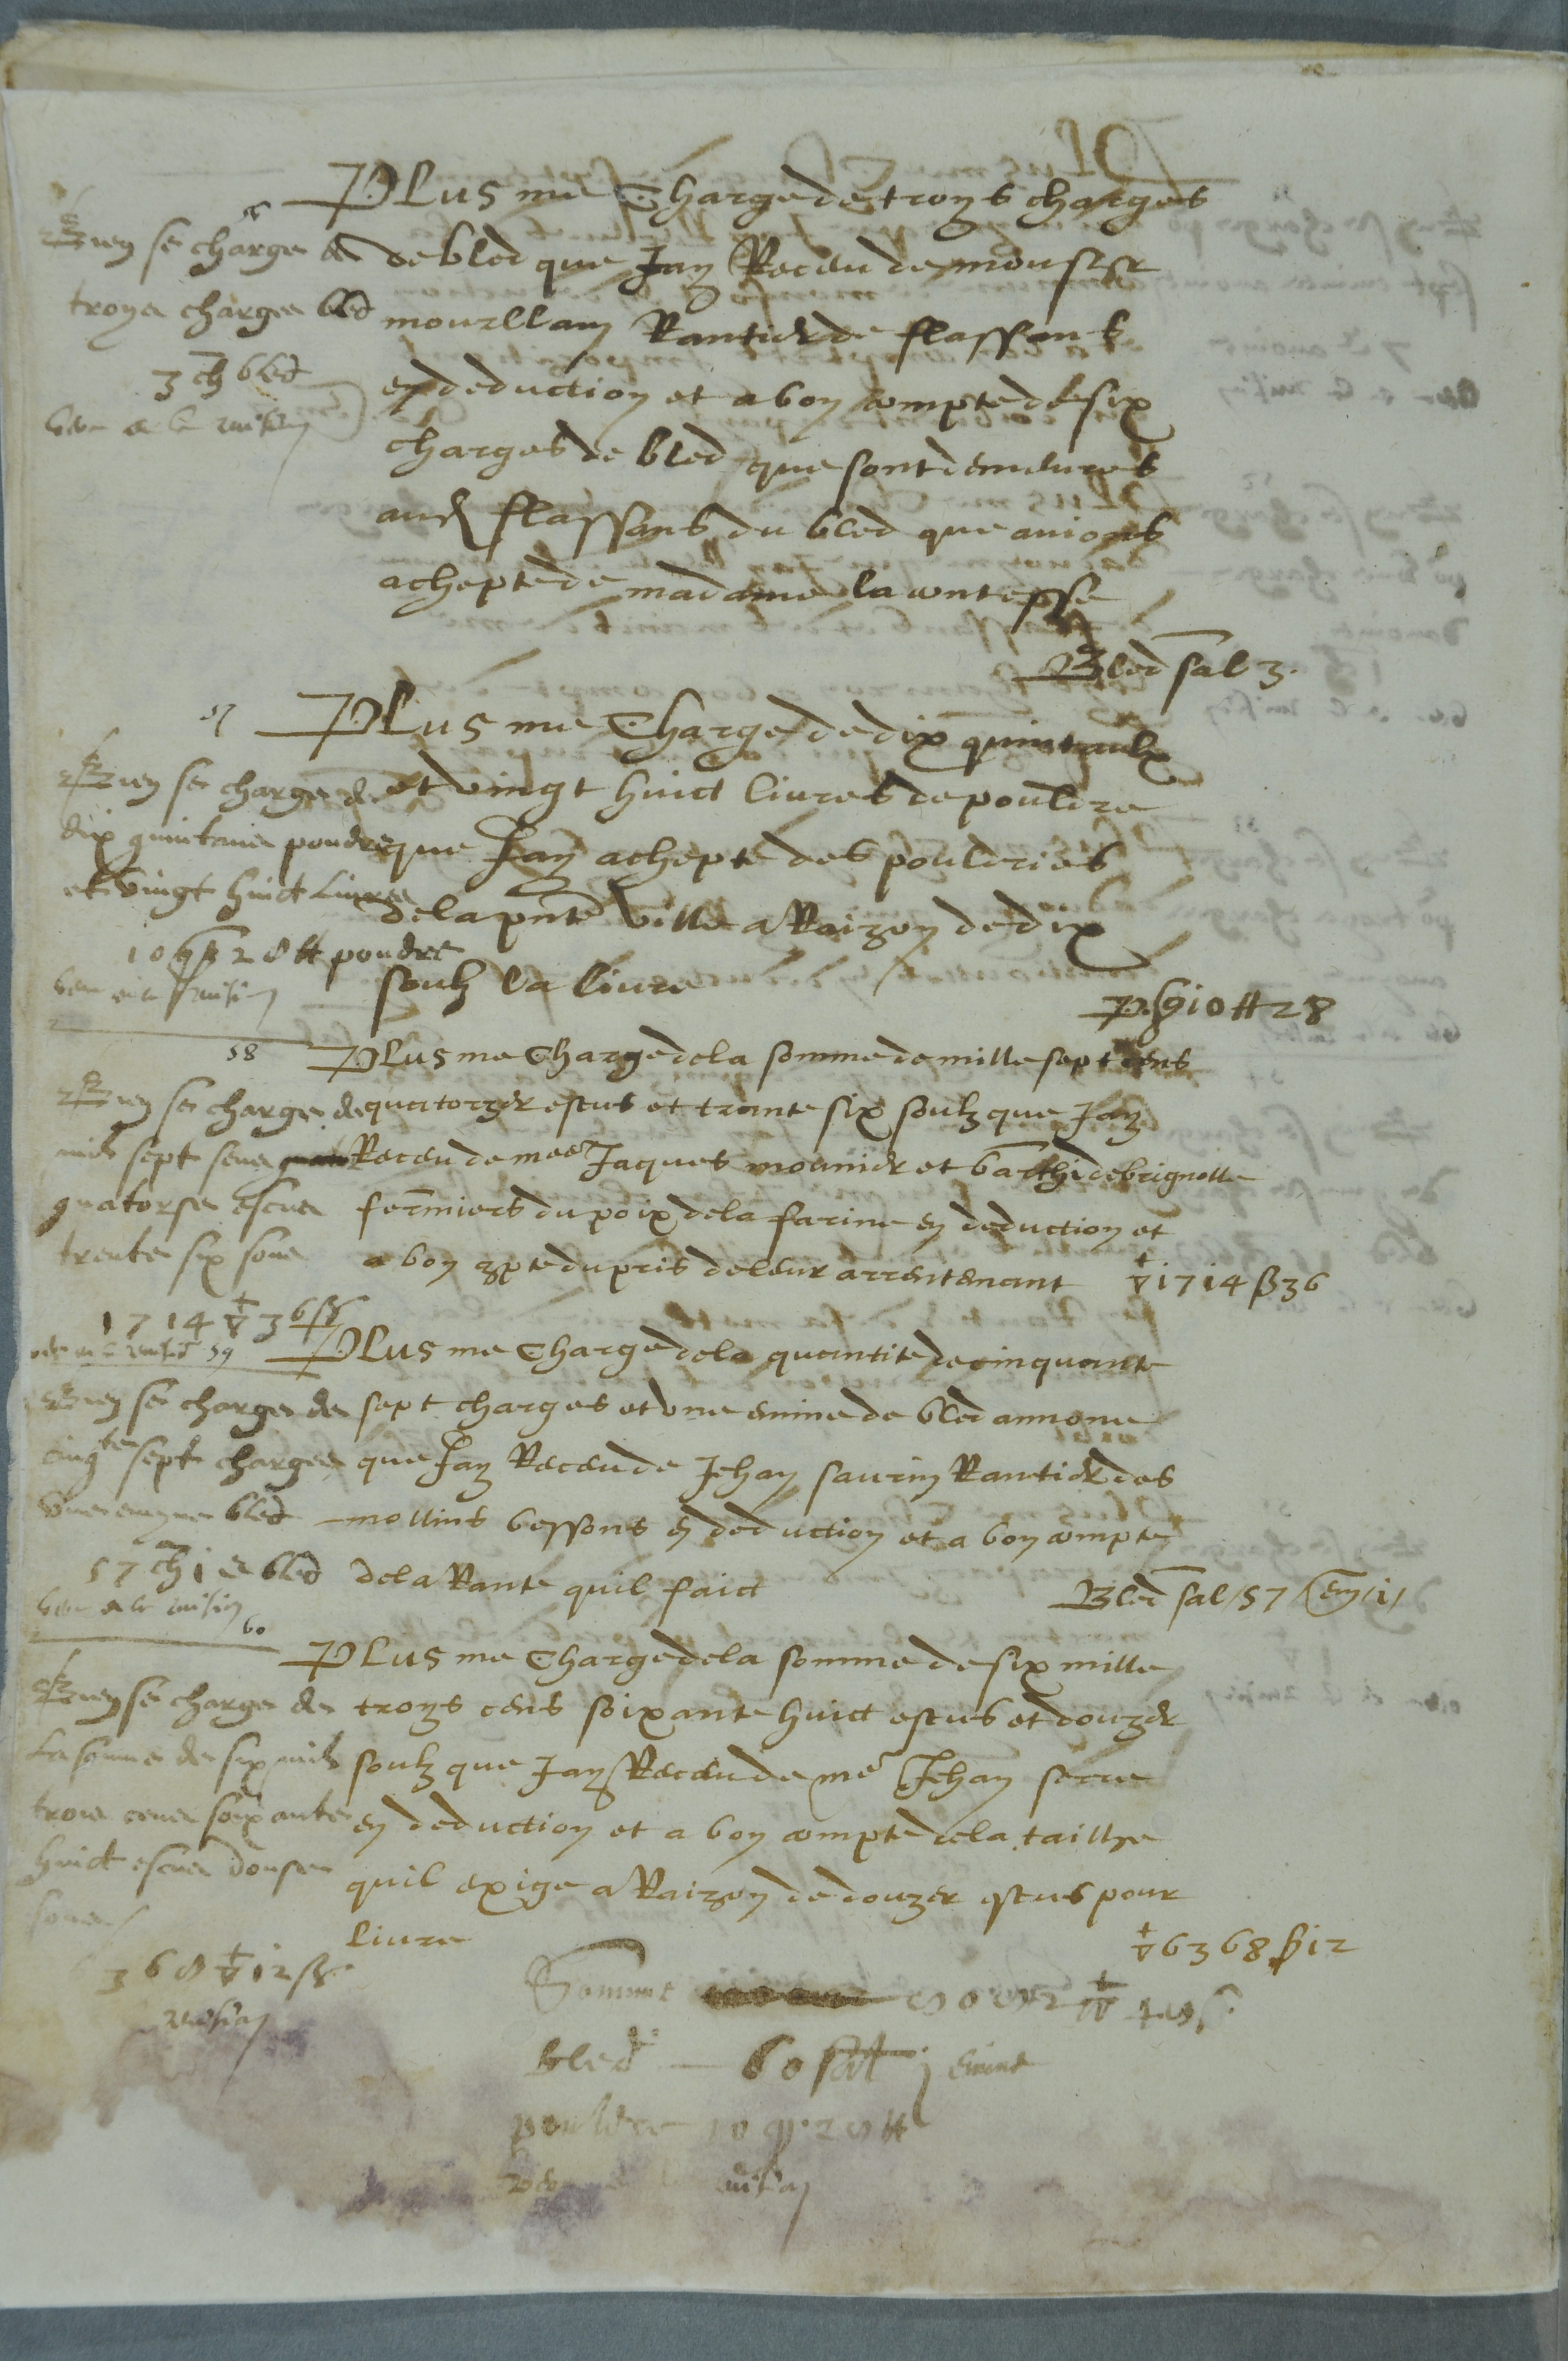 PLus me Charge de troys charges
de bled que Jay Receu de monsr
mourllan Rantier de flassans
en deduction et a bon compte de six
charges de bled que sont demeures
aud flassans du bled que avions
achepte de madame la contesse
Bled sal 3.
Rien se charge de
troys charges bled
3 ch bled
57
PLus me Charge de dix quintaulx
et vingt huict livres de pouldre
que Jay achepte des pouldriers
de la pnte ville a Raizon de dix
soulz la livre
P. q 10 tt 28
Rien se charge de
dix quintaus poudre
et vingt huict Livres
10 q 28 tt poudre
58
PLus me Charge de la somme de mille sept cens
quatorzer escus et trante six soulz que Jay
Receu de mes Jaques mounier et barthi de brignolle
fermiers du poix de la farine en deduction et
a bon 9pte du pris de leur arrentenant
▽ 1714 ß 36
Rien se charge de
mil sept sens
quatorse escus
trente six sous
1714 ▽ 36 ß
59
PLus me Charge de la quantite de cinquante
sept charges et une emine de bled annone
que Jay Receu de Jehan saurin Rantier des
mollins bessons en deduction et a bon compte
de la Rante quil faict
Bled sal 57 em 1
Rien se charge de
cinqte sept charges
une emyne bled
57 ch 1 e bled
60
PLus me Charge de la somme de six mille
troys cens soixante huict escus et douzer
soulz que Jay Receu de me Jehan serre
en deduction et a bon compte de la tailhe
quil exige a Raizon de douzer escus pour
livre
▽ 6368 ß 12
Rien se charge de
La somme de six mil
trois cens soixante
huict escus douse
sous
368 ▽ 12 ß
Somme
bled 60 sal 1 emine
pouldre 10 q. 28 tt